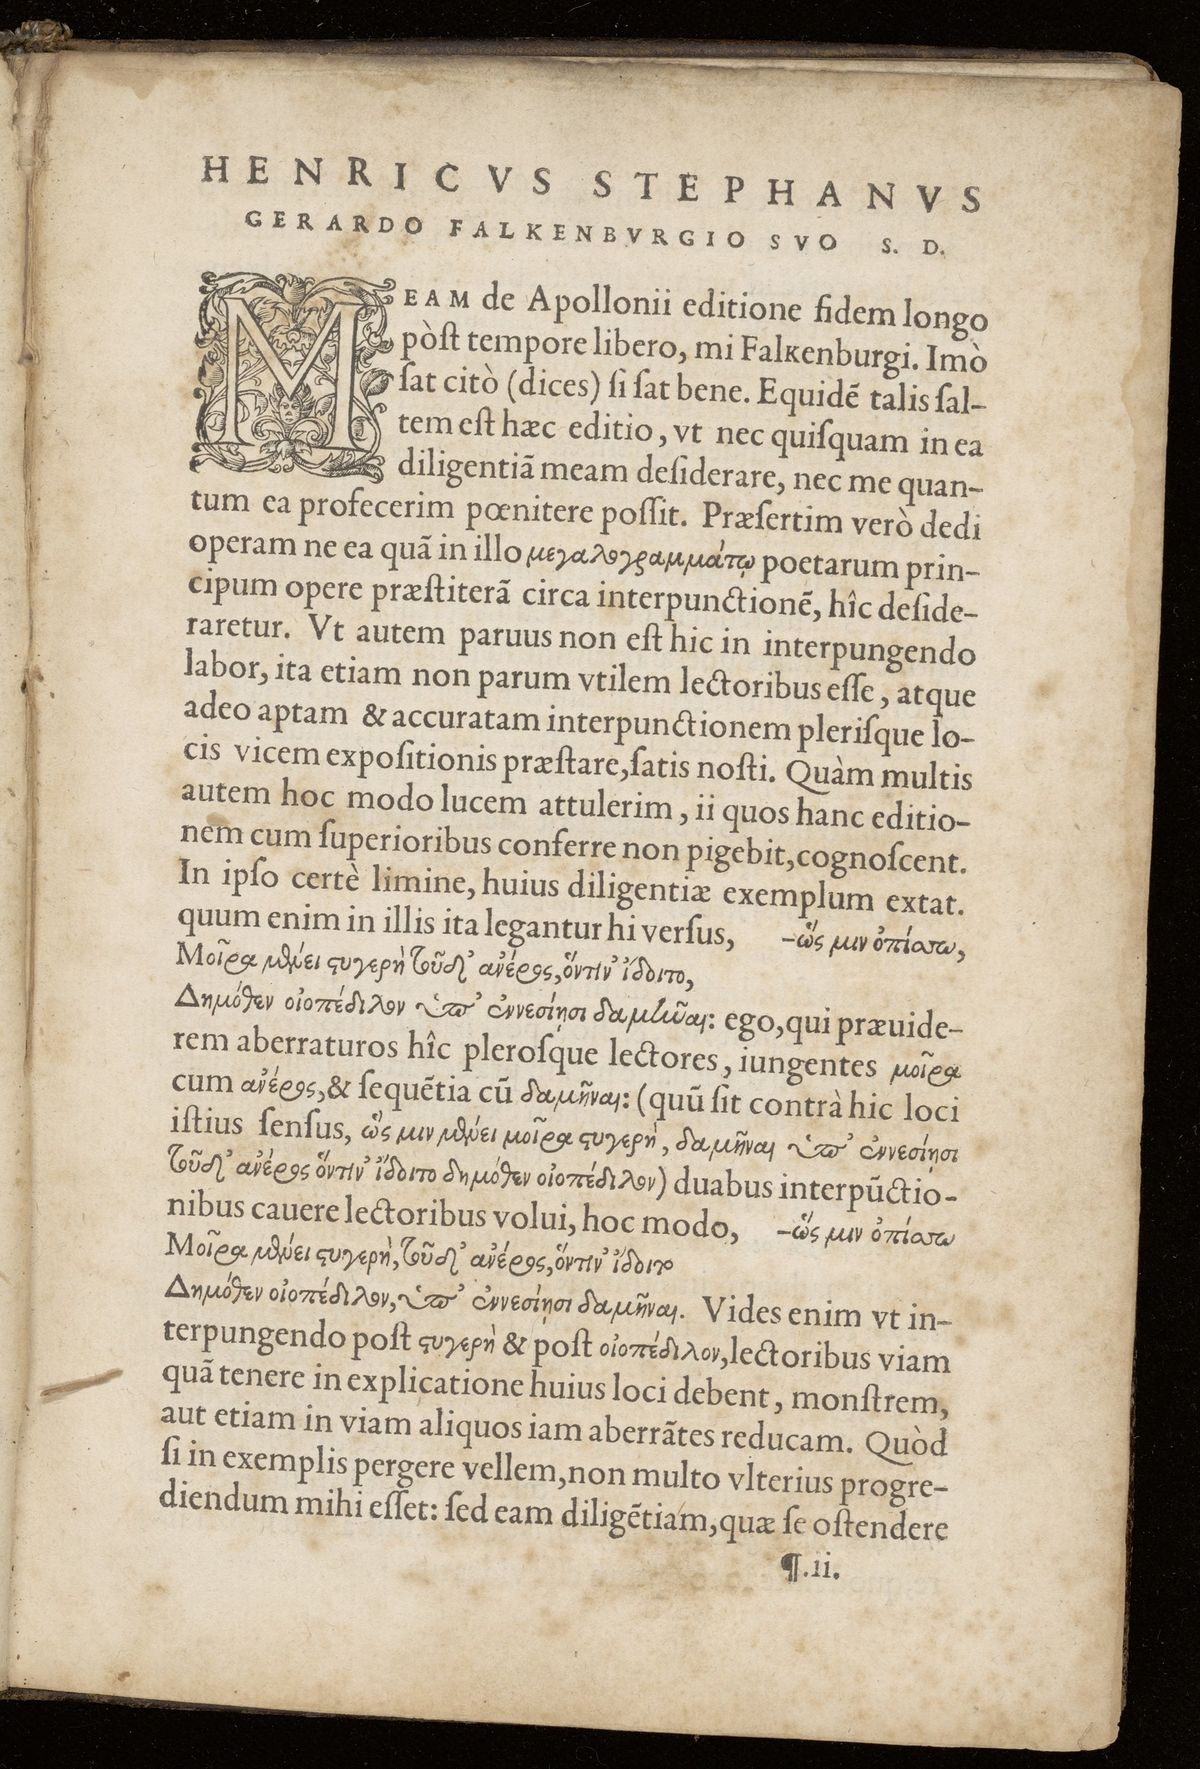 HENRICVS STEPHANVS
GERARDO FALKENBVRGIO SVO S. D.
MEAM de Apollonii editione fidem longo
pòſt tempore libero, mi Falкenburgi. Imò
ſat citò (dices) ſi ſat bene. Equidẽ talis ſal-
tem eſt hæc editio, vt nec quiſquam in ea
diligentiã meam deſiderare, nec me quan-
tum ea profecerim pœnitere poſſit. Præſertim verò dedi
operam ne ea quã in illo μεγαλογραμμάτῳ poetarum prin-
cipum opere præſtiterã circa interpunctionẽ, hîc deſide-
raretur. Vt autem paruus non eſt hic in interpungendo
labor, ita etiam non parum vtilem lectoribus eſſe, atque
adeo aptam & accuratam interpunctionem pleriſque lo-
cis vicem expoſitionis præſtare, ſatis noſti. Quàm multis
autem hoc modo lucem attulerim, ii quos hanc editio-
nem cum ſuperioribus conferre non pigebit, cognoſcent.
In ipſo certè limine, huius diligentiæ exemplum extat.
quum enim in illis ita legantur hi verſus, –ὥς μιν ὀπίσσω,
Μοῖρα μθύει ϛυγερὴ τοῦδ᾽ ἀνέρος, ὅντιν᾽ ἴδοιτο,
Δημόθεν οἰοπέδιλον ὑπ᾽ ἐννεσίῃσι δαμῆναι: ego, qui præuide-
rem aberraturos hîc pleroſque lectores, iungentes μοῖρα
cum ἀνέρος, & ſequẽtia cũ δαμῆναι: (quũ ſit contrà hic loci
iſtius ſenſus, ὥς μιν μθύει μοῖρα ϛυγερή, δαμῆναι ὑπ᾽ ἐννεσίῃσι
τοῦδ᾽ ἀνέρος ὅντιν᾽ ἴδοιτο δημόθεν οἰοπέδιλον) duabus interpũctio-
nibus cauere lectoribus volui, hoc modo, –ὥς μιν ὀπίσσω
Μοῖρα μθύει ϛυγερὴ, τοῦδ᾽ ἀνέρος, ὅντιν᾽ ἴδοιτο
Δημόθεν οἰοπέδιλον, ὑπ᾽ ἐννεσίῃσι δαμῆναι. Vides enim vt in-
terpungendo poſt ϛυγερὴ & poſt οἰοπέδιλον, lectoribus viam
quã tenere in explicatione huius loci debent, monſtrem,
aut etiam in viam aliquos iam aberrãtes reducam. Quòd
ſi in exemplis pergere vellem, non multo vlterius progre-
diendum mihi eſſet: ſed eam diligẽtiam, quæ ſe oſtendere
¶.ii.